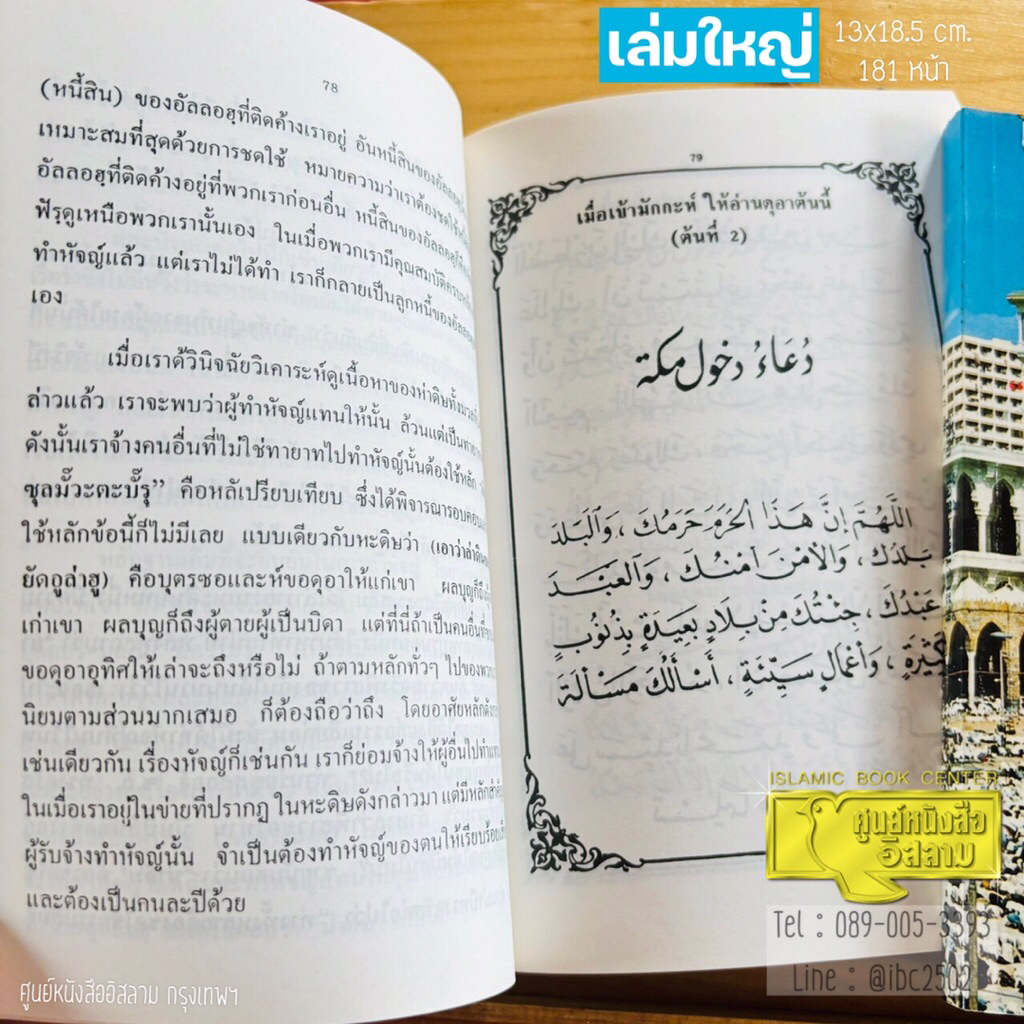 เล่มใหญ่
13x18.5 cm.
181 หน้า
78
(หนี้สิน) ของอัลลอฮฺที่ติดค้างเราอยู่ อันหนี้สินของอัลลอฮฺ
เหมาะสมที่สุดด้วยการชดใช้ หมายความว่าเราต้องชดใช้
อัลลอฮฺที่ติดค้างอยู่ที่พวกเราก่อนอื่น หนี้สินของอัลลอฮฺก็
ฟัรฺดูเหนือพวกเรานั้นเอง ในเมื่อพวกเรามีคุณสมบัติครบ
ทำหัจญ์แล้ว แต่เราไม่ได้ทำ เราก็กลายเป็นลูกหนี้ของอัลลอฮฺ
เอง
เมื่อเราด้วินิจฉัยวิเคาระห์ดูเนื้อหาของห่าดิษทั้ง
ล่าวแล้ว เราจะพบว่าผู้ทำหัจญ์แทนให้นั้น ล้วนแต่เป็น
ดังนั้นเราจ้างคนอื่นที่ไม่ใช่ทายาทไปทำหัจญ์นั้นต้องใช้หลัก
ซุลมั๊วะตะบั๊รฺ” คือหลัเปรียบเทียบ ซึ่งได้พิจารณารอบคอบ
ใช้หลักข้อนี้ก็ไม่มีเลย แบบเดียวกับหะดิษว่า (เอาว่าล่าดิน
ยัดอูล่าฮู) คือบุตรซอและห์ขอดุอาให้แก่เขา ผลบุญก็ถึง
เก่าเขา ผลบุญก็ถึงผู้ตายผู้เป็นบิดา แต่ที่นี้ถ้าเป็นคนอื่นที่
ขอดุอาอุทิศให้เล่าจะถึงหรือไม่ ถ้าตามหลักทั่วๆ ไปของ
นิยมตามส่วนมากเสมอ ก็ต้องถือว่าถึง โดยอาศัยหลัก
เช่นเดียวกัน เรื่องหัจญ์ก็เช่นกัน เราก็ย่อมจ้างให้ผู้อื่นไปทำ
ในเมื่อเราอยู่ในข่ายที่ปรากฏ ในหะดิษดังกล่าวมา แต่มีหลักสำคัญ
ผู้รับจ้างทำหัจญ์นั้น จำเป็นต้องทำหัจญ์ของตนให้เรียบร้อย
และต้องเป็นกนละปีด้วย
79
เมื่อเข้ามักกะห์ ให้อ่านดุอาต้นนี้
(ต้นที่ 2)
دُعَاءُ دخول مكة
اللَّهُمَّ إِنَّ هَذَا الْحَرَمَ حَرَمُكَ ، وَالْبَلَدَ
بَلَدُكَ ، وَالْأَمْنَ أَمْنُكَ ، وَالْعَبْدَ
عَبْدُكَ ، جِئْتُكَ مِنْ بِلَادٍ بَعِيدَةٍ بِذُنُوبٍ
كَثِيرَةٍ ، وَأَعْمَالٍ سَيِّئَةٍ ، أَسْأَلُكَ مَسْأَلَةَ
ISLAMIC BOOK CENTER
ศูนย์หนังสือ
อิสลาม
Tel : 089-005-3393
Line : @ibc2502
ศูนย์หนังสืออิสลาม กรุงเทพฯ